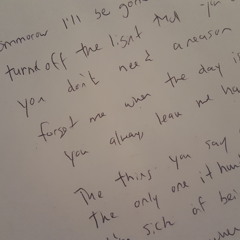 I'll be gone
turnd off the light and
you don't need a reason
forget me when the day is
you always leave me ha
The thing you say
the only one it hur
sick of bei